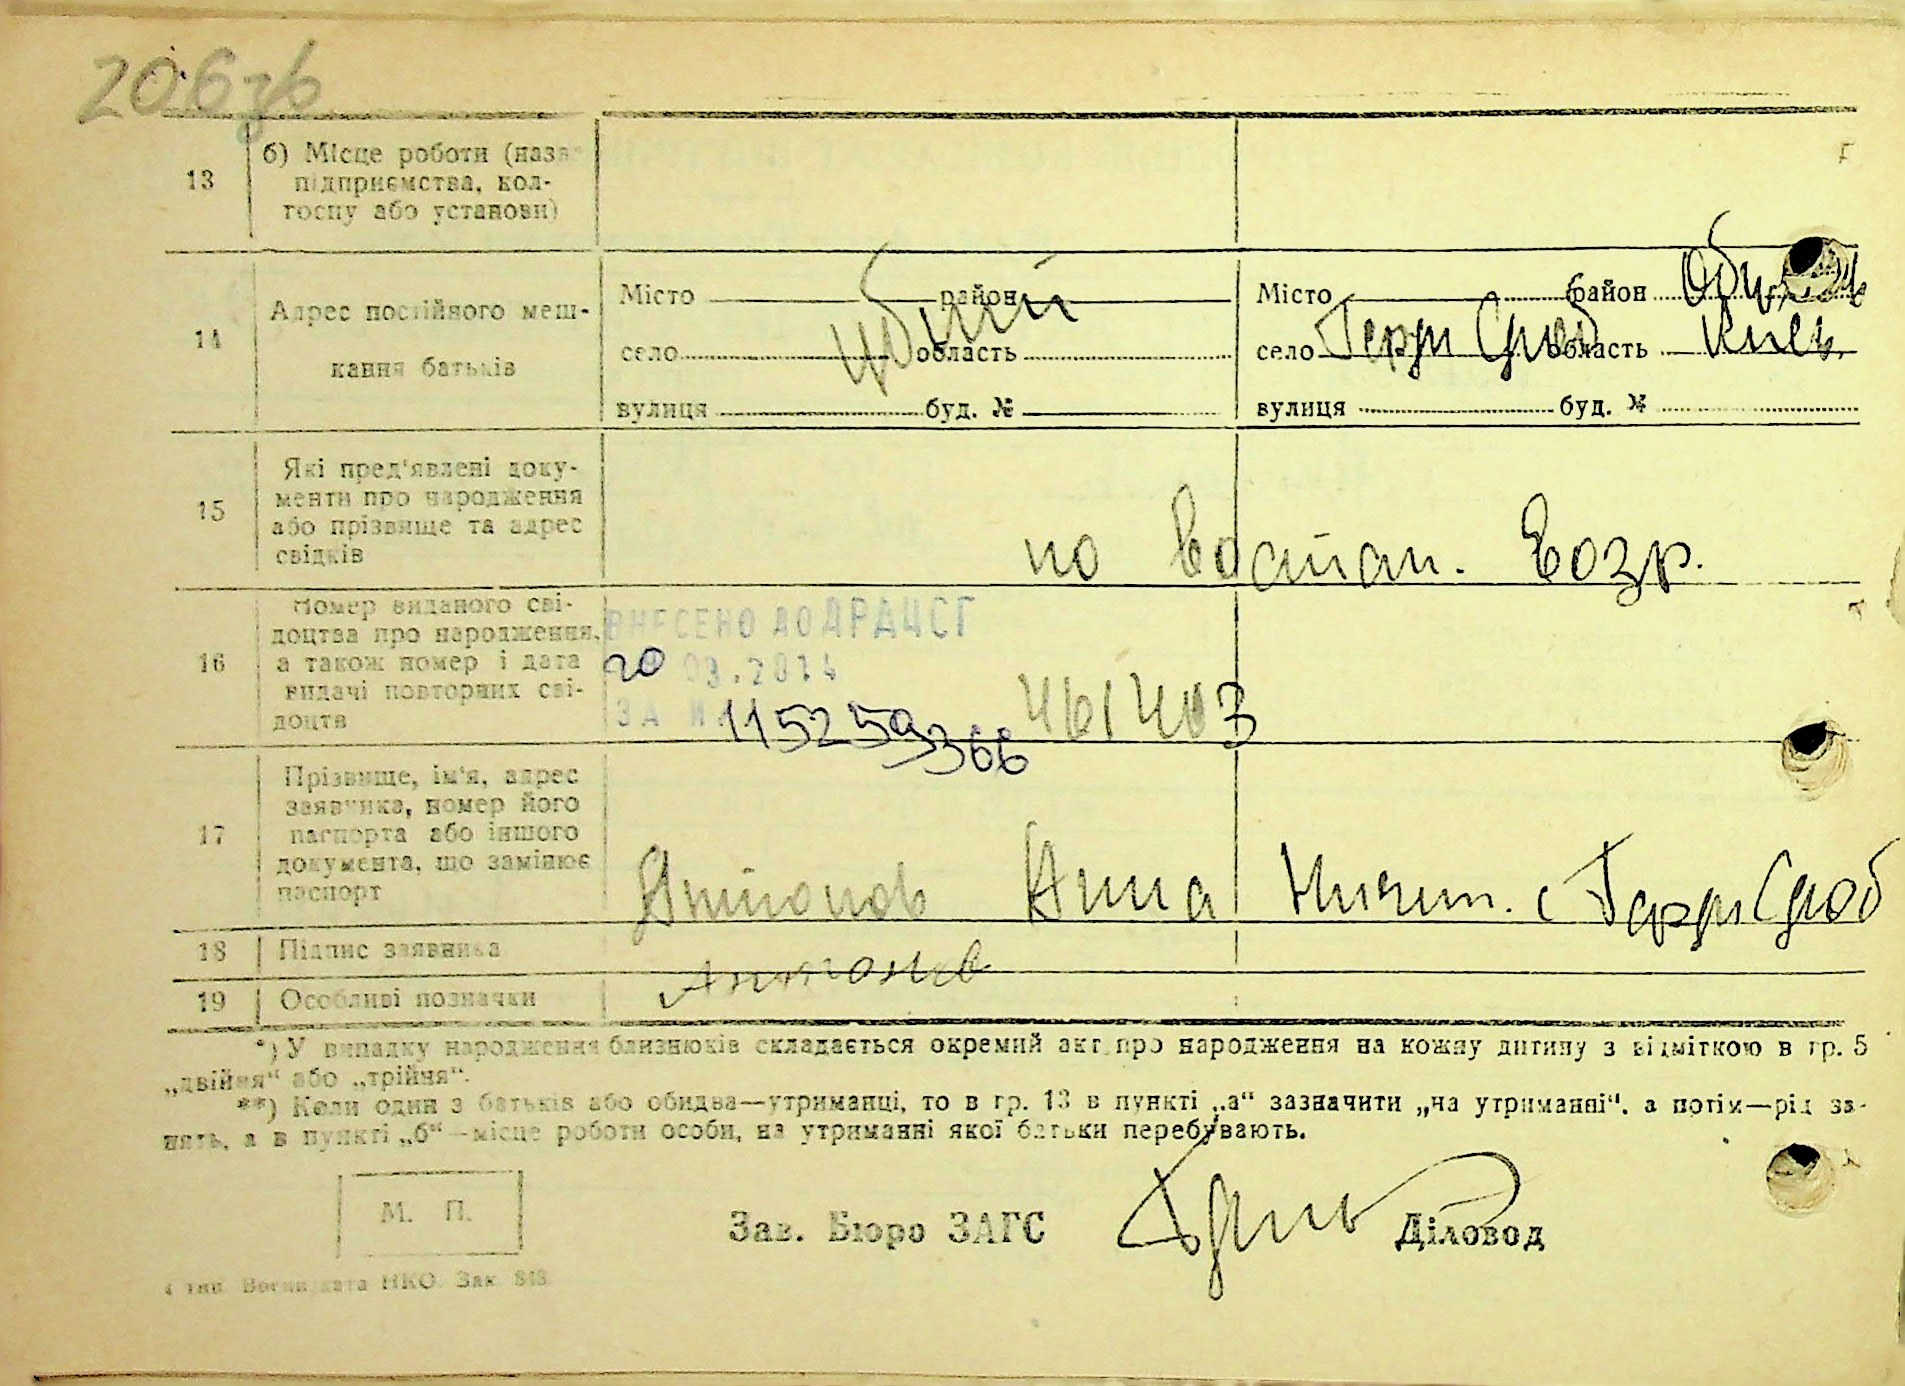 206зв
13
б) Місце роботи (назва
підприємства, кол-
госпу або установи)
14
Адрес постійного меш-
кання батьків
Місто район
село область
вулиця буд. №
убитий
Місто район Обух
село область Київ.
вулиця буд. №
15
Які пред'явлені доку-
менти про народження
або прізвище та адрес
свідків
по востан. возр.
16
Номер виданого сві-
доцтва про народження,
а також номер і дата
видачі повторних сві-
доцтв
ВНЕСЕНО ДО ДРАЦСГ
20 03.2014
ЗА № 115259366
461403
17
Прізвище, ім'я, адрес
заявника, номер його
паспорта або іншого
документа, що замінює
паспорт
Антонов Анна Никит. с
18 Підпис заявника
Антонов
19 Особливі позначки
*) У випадку народження близнюків складається окремий акт про народження на кожну дитину з відміткою в гр. 5
„двійня“ або „трійня“.
**) Коли один з батьків або обидва—утриманці, то в гр. 13 в пункті „а“ зазначити „на утриманні“, а потім—рід за-
нять, а в пункті „б“—місце роботи особи, на утриманні якої батьки перебувають.
М. П.
Зав. Бюро ЗАГС
Діловод
4 тип. Воениздата НКО. Зак. 848